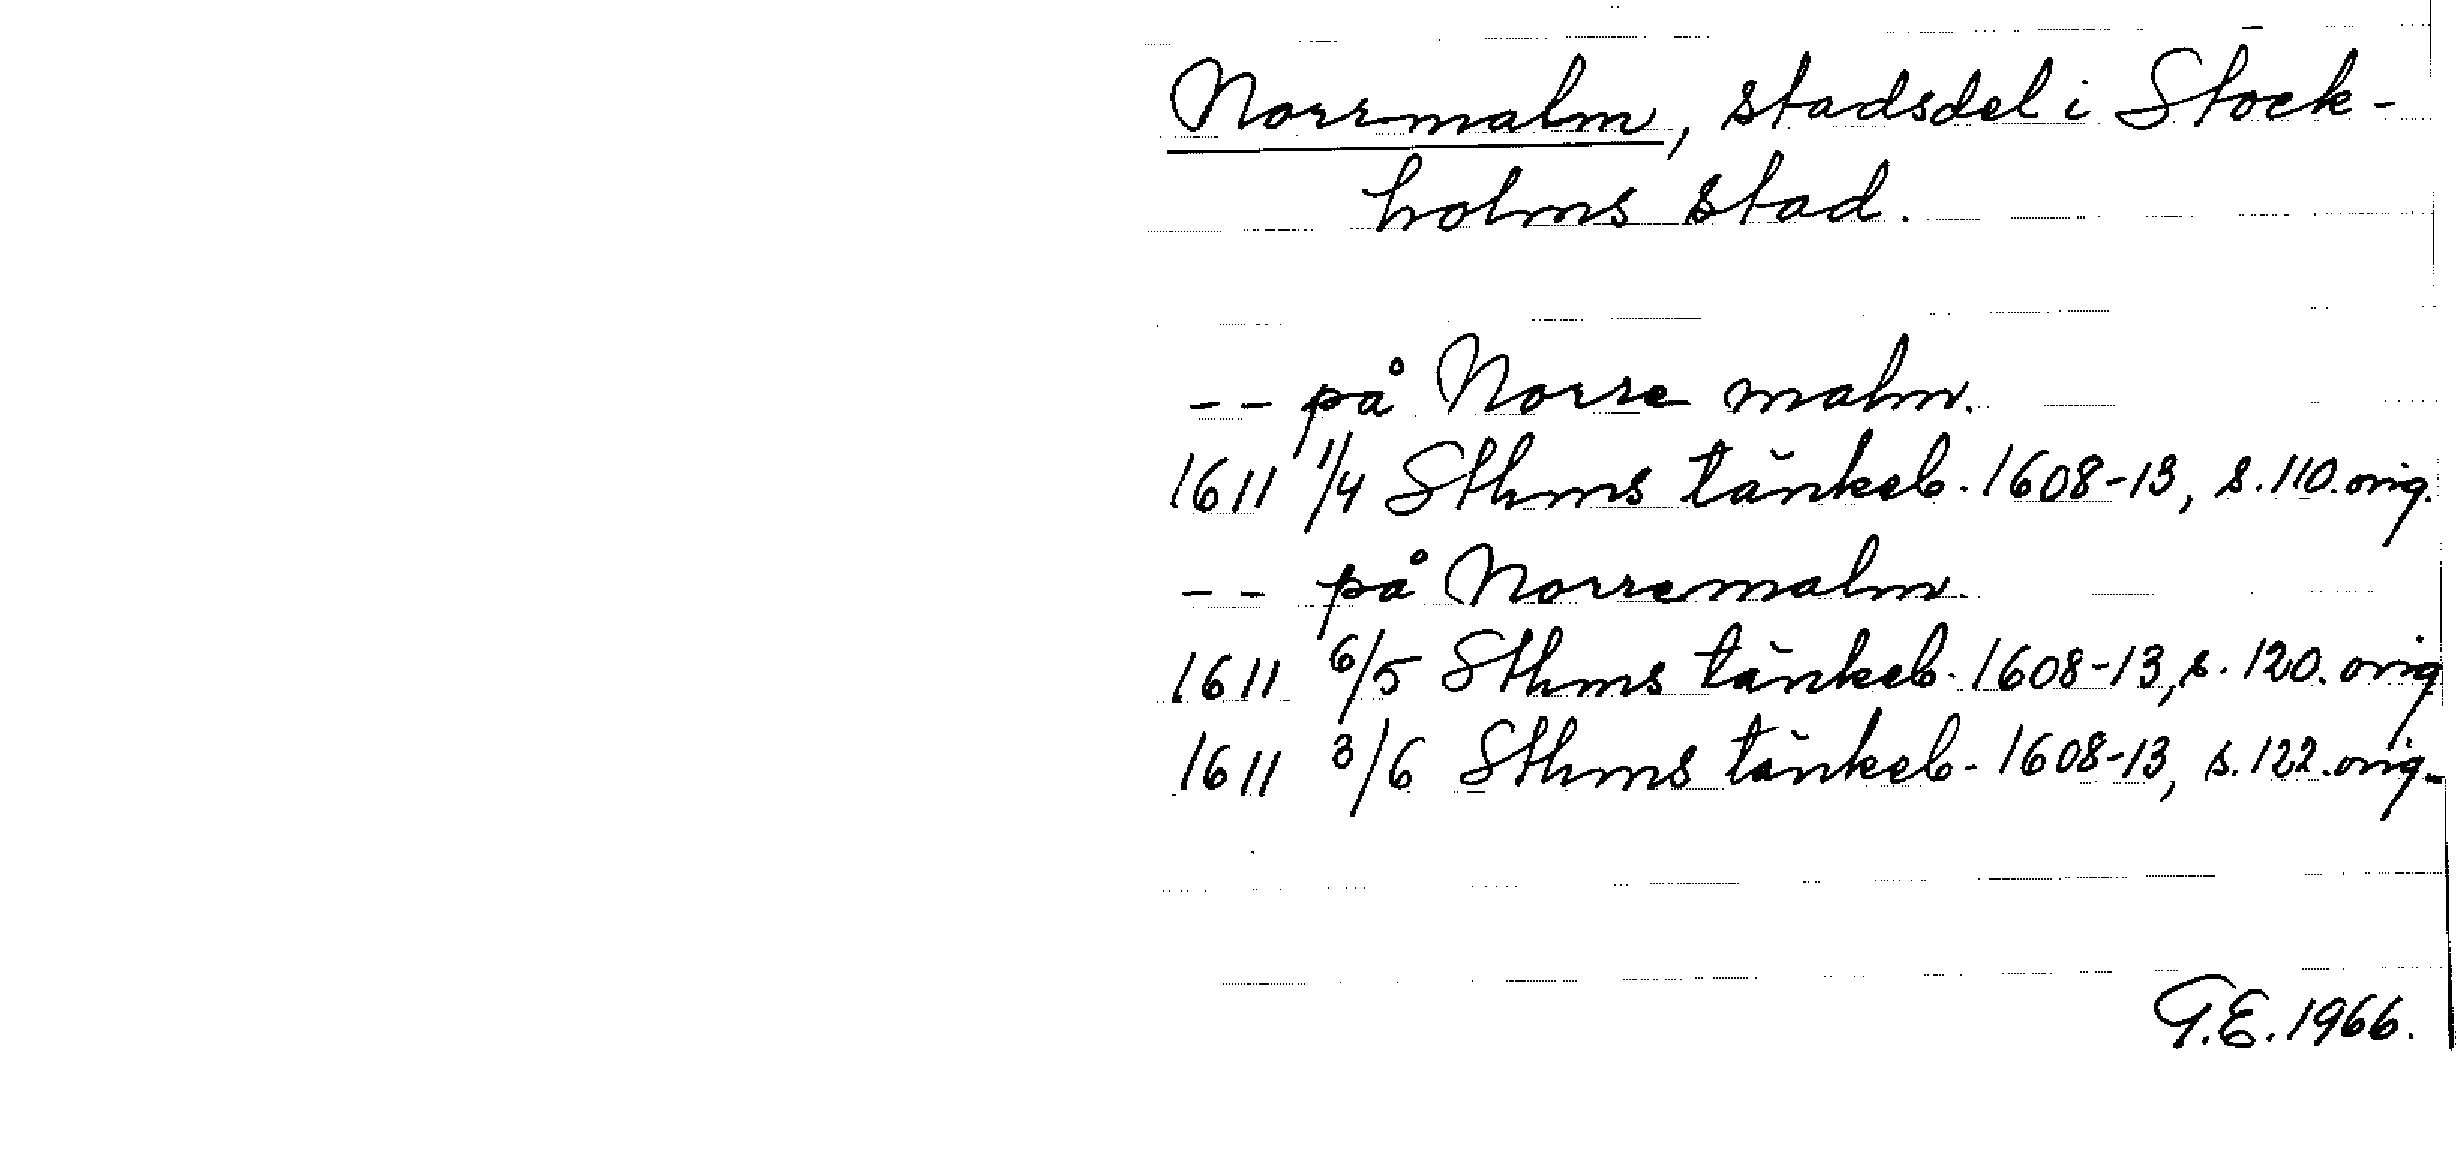 Norrmalm, stadsdel i Stock-
holms stad.
-- på Norre malm.
1611 1/4 Sthms tänkeb. 1608-13, s. 110. orig.
-- på Norremalm.
1611 6/5 Sthms tänkeb. 1608-13, s. 120. orig
1611 3/6 Sthms tänkeb. 1608-13, s. 122. orig.
G.E. 1966.